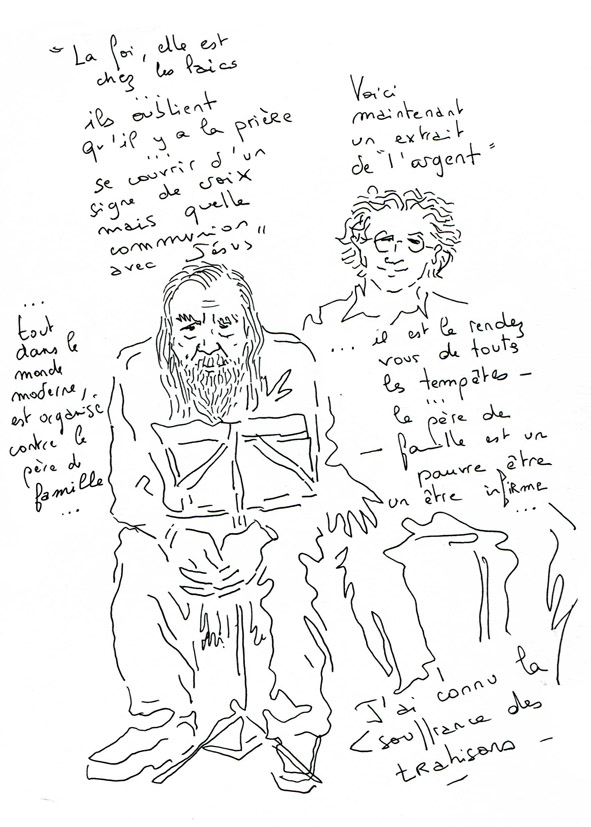 " La foi, elle est
chez les laïcs
...
ils oublient
qu'il y a la prière
...
se couvrir d'un
signe de croix
mais quelle
communion
avec Jésus "
Voici
maintenant
un extrait
de "l'argent"
...
tout
dans le
monde
moderne,
est organisé
contre le
père de
famille
...
... il est le rendez
vous de toutes
les tempêtes -
...
le père de
- famille est un
pauvre être
un être infirme
...
J'ai connu la
souffrance des
trahisons -